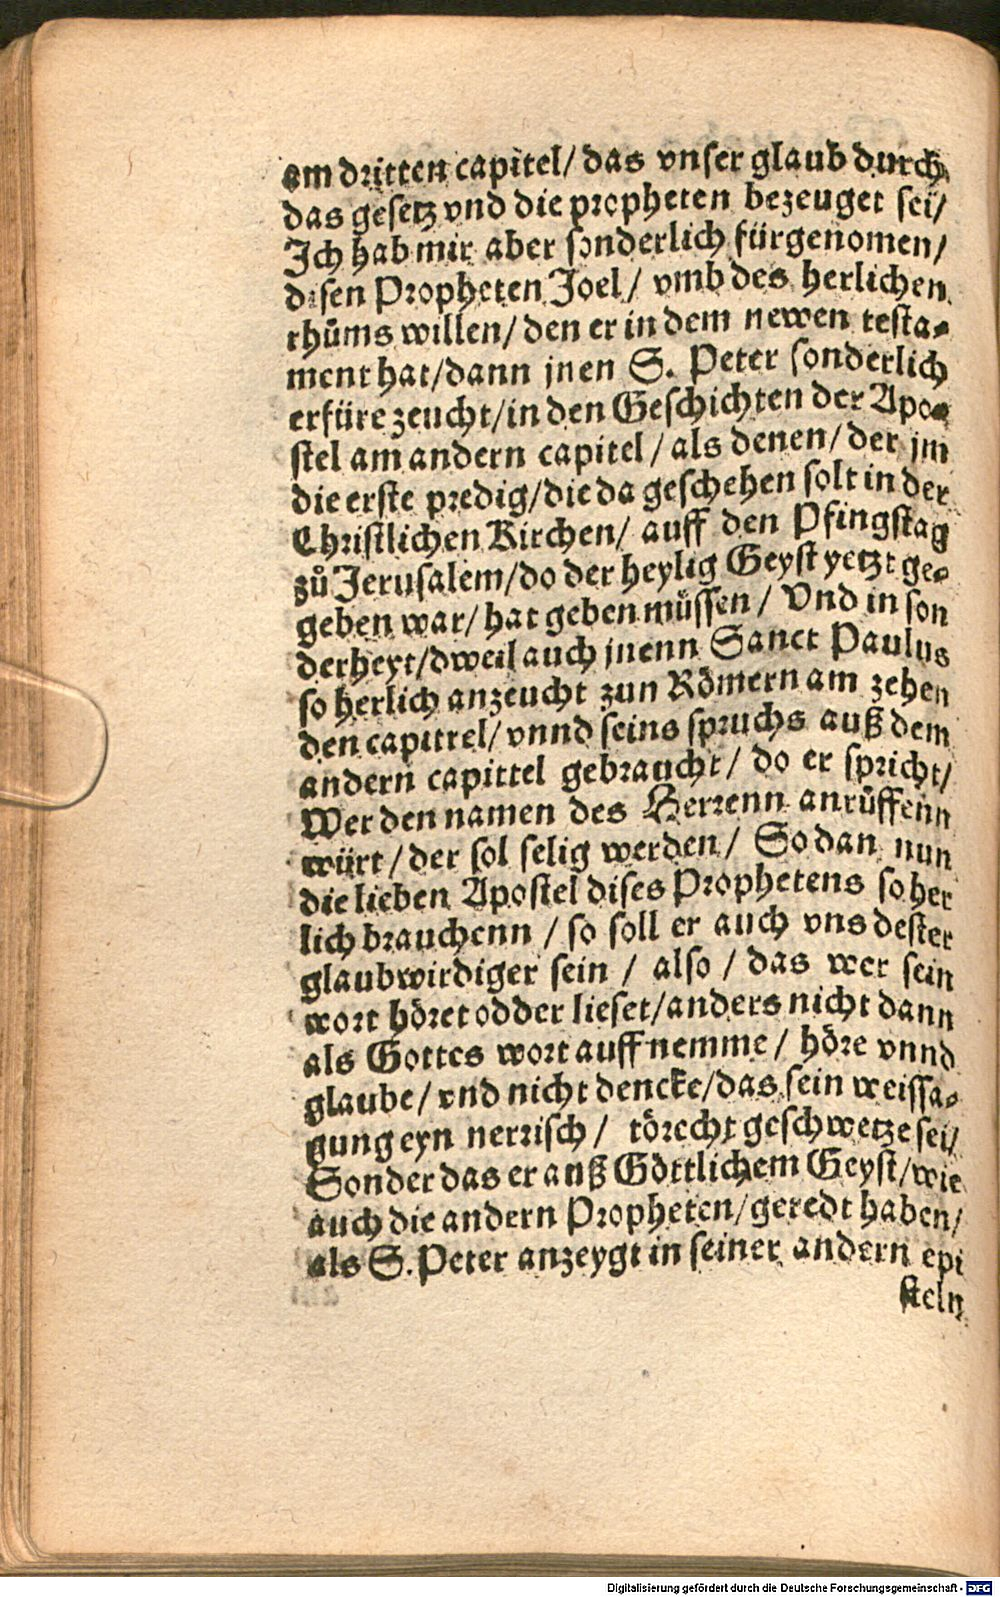 am dritten capitel/ das vnser glaub durch
das gesetz vnd die propheten bezeuget sei/
Ich hab mir aber sonderlich fürgenomen/
disen Propheten Joel/ vmb des herlichen
rhůms willen/ den er in dem newen testa-
ment hat/dann jnen S. Peter sonderlich
erfüre zeucht/in den Geschichten der Apo-
stel am andern capitel/ als denen/ der jm
die erste predig/die da geschehen solt in der
Christlichen Kirchen/ auff den Pfingstag
zů Jerusalem/do der heylig Geyst yetzt ge-
geben war/ hat geben müssen/ Vnd in son
derheyt/dweil auch jnenn Sanct Paulus
so herlich anzeucht zun Römern am zehen
den capittel/ vnnd seins spruchs auß dem
andern capittel gebraucht/ do er spricht/
Wer den namen des Herrenn anrůffenn
würt/der sol selig werden/ So dan nun
die lieben Apostel dises Prophetens so her
lich brauchenn/ so soll er auch vns dester
glaubwirdiger sein/ also/ das wer sein
wort höret odder lieset/anders nicht dann
als Gottes wort auff nemme/ höre vnnd
glaube/vnd nicht dencke/das sein weissa-
gung eyn nerrisch/ törecht geschwetze sei/
Sonder das er auß Göttlichem Geyst/wie
auch die andern Propheten/geredt haben/
als S. Peter anzeygt in seiner andern epi
steln
Digitalisierung gefördert durch die Deutsche Forschungsgemeinschaft - DFG